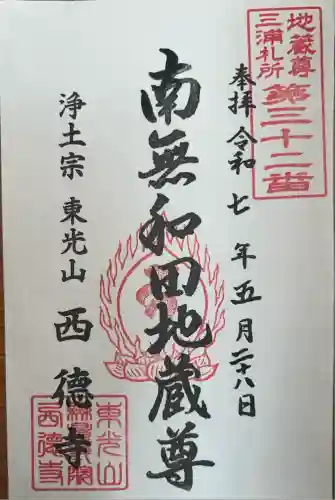 地蔵尊
三浦札所
第三十二番
奉拝 令和 七 年 五 月 二十八日
南無和田地蔵尊
浄土宗 東光山 西徳寺
東光山
西徳寺